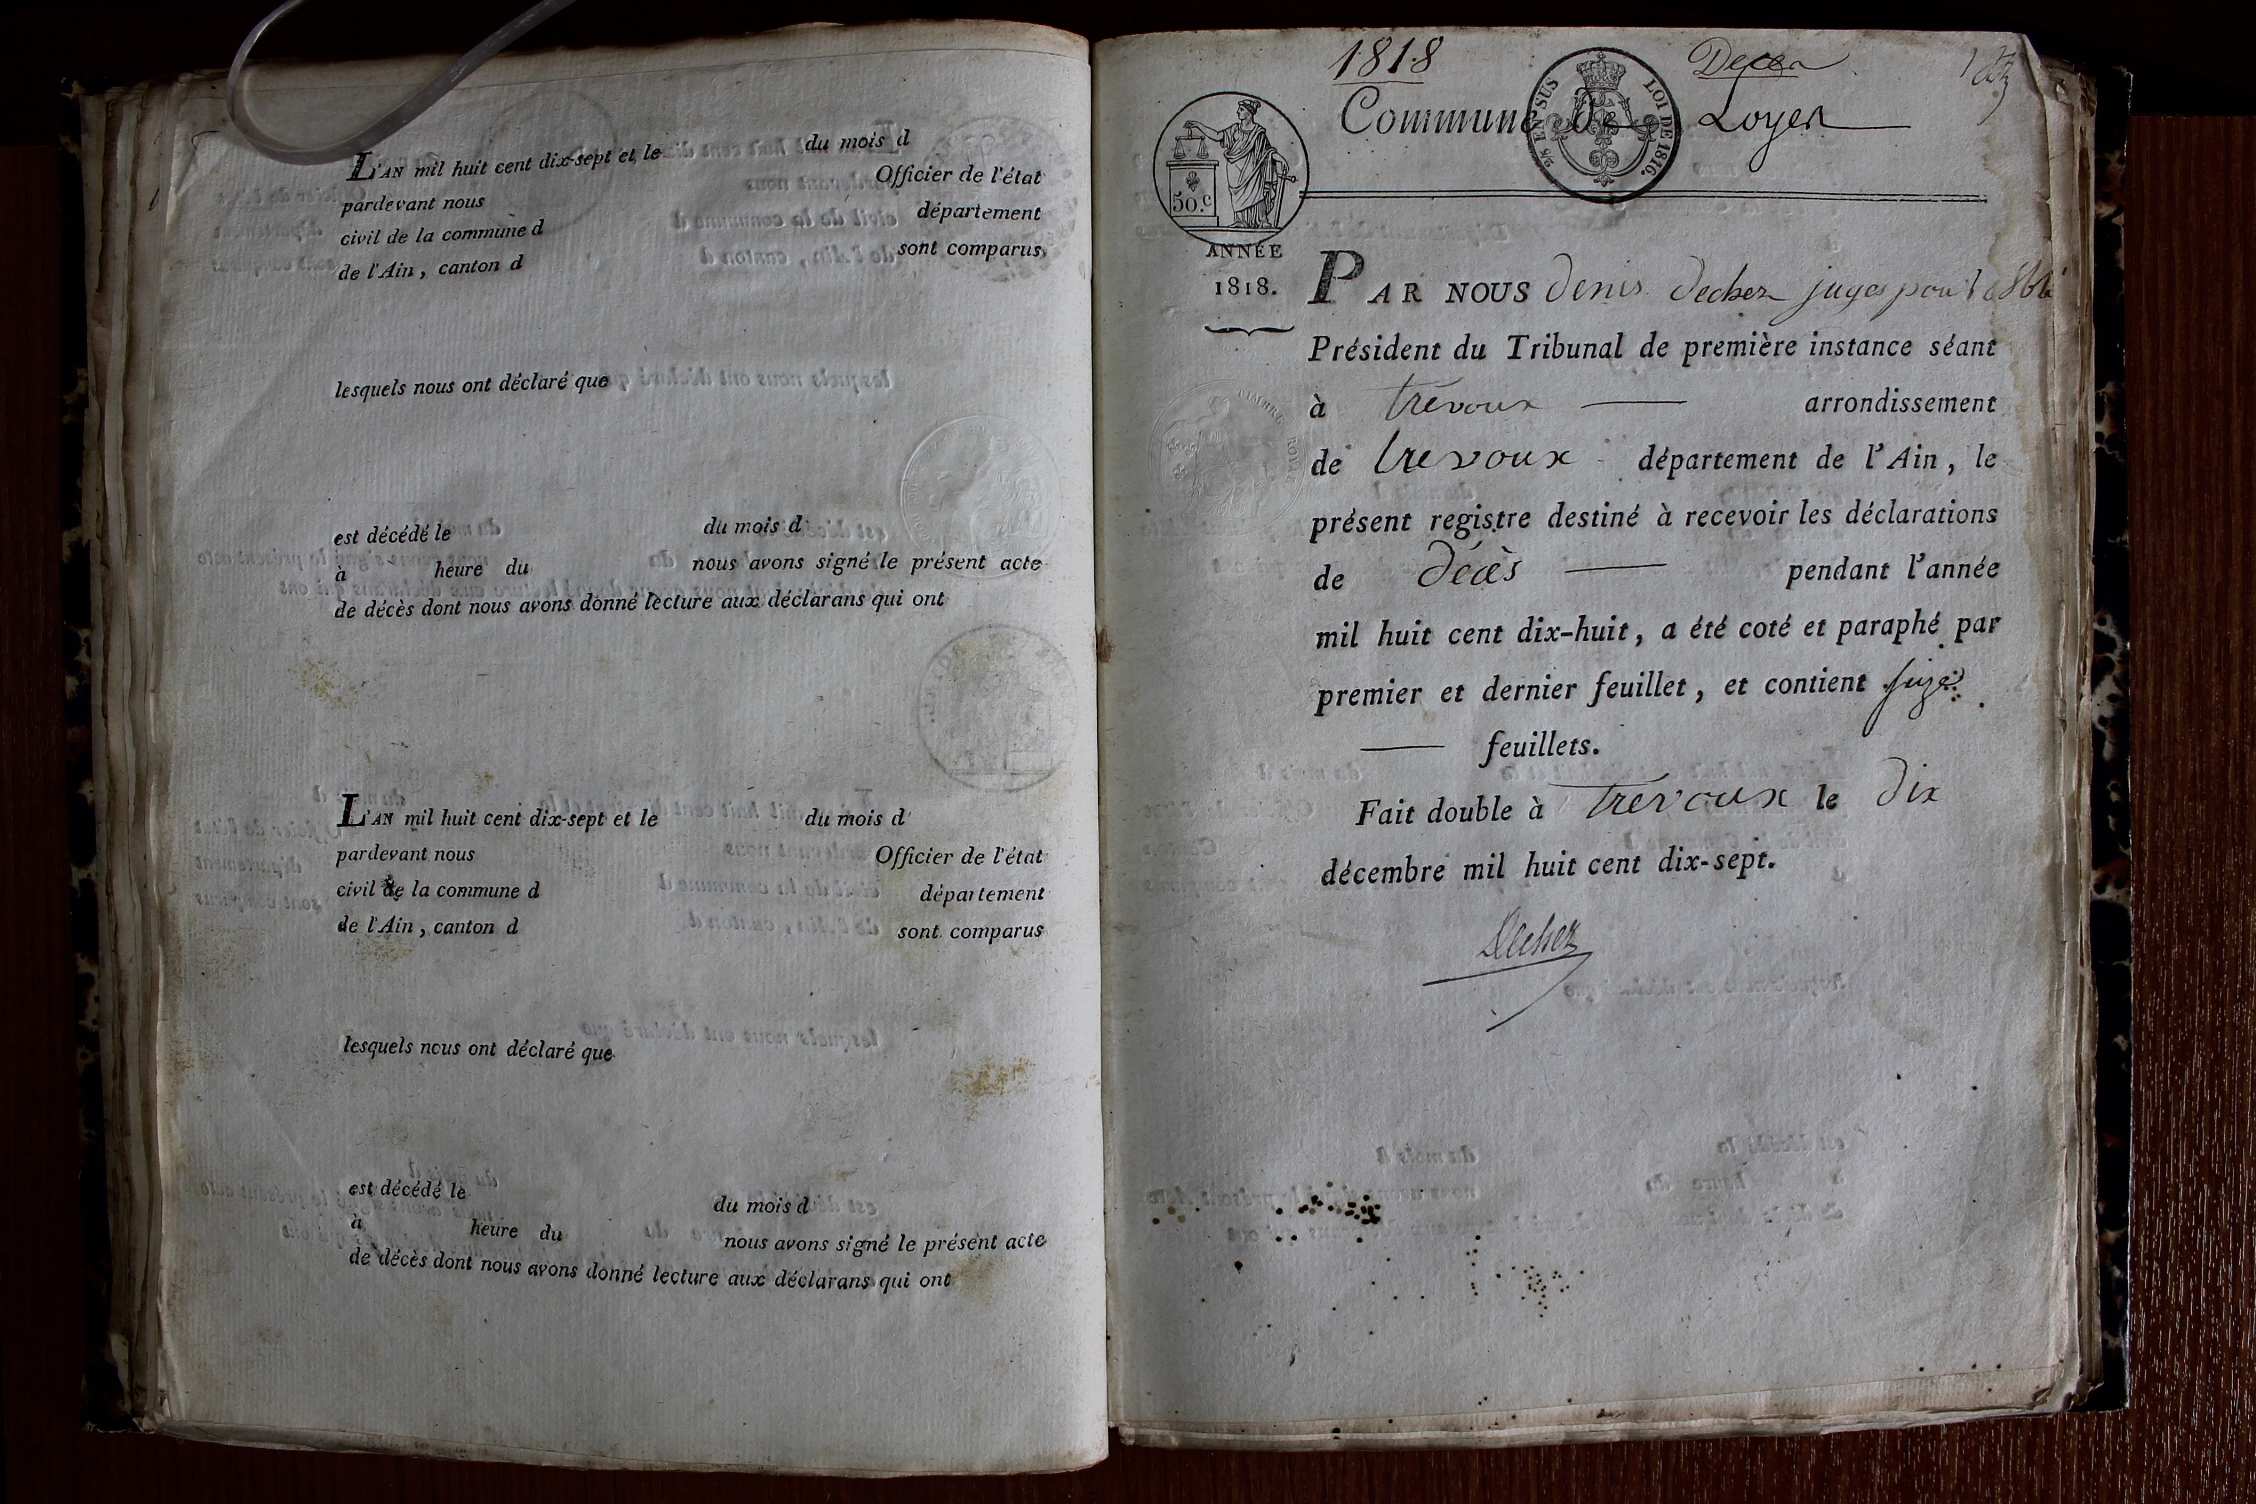 L'AN mil huit cent dix-sept et le du mois d
pardevant nous Officier de l'état
civil de la commune d département
de l'Ain, canton d sont comparus
lesquels nous ont déclaré que
est décédé le du mois d
à heure du nous avons signé le présent acte
de décès dont nous avons donné lecture aux déclarans qui ont
L'AN mil huit cent dix-sept et le du mois d
pardevant nous Officier de l'état
civil de la commune d département
de l'Ain, canton d sont comparus
lesquels nous ont déclaré que
est décédé le du mois d
à heure du nous avons signé le présent acte
de décès dont nous avons donné lecture aux déclarans qui ont
1818
Commune de Loyes
EN SUS LOI DE 1816.
50.c
ANNÉE
1818.
PAR NOUS denis dechez juge pour
Président du Tribunal de première instance séant
à trevoux arrondissement
de trevoux département de l'Ain, le
présent registre destiné à recevoir les déclarations
de décès pendant l'année
mil huit cent dix-huit, a été coté et paraphé par
premier et dernier feuillet, et contient
feuillets.
Fait double à Trevoux le dix
décembre mil huit cent dix-sept.
Dechez